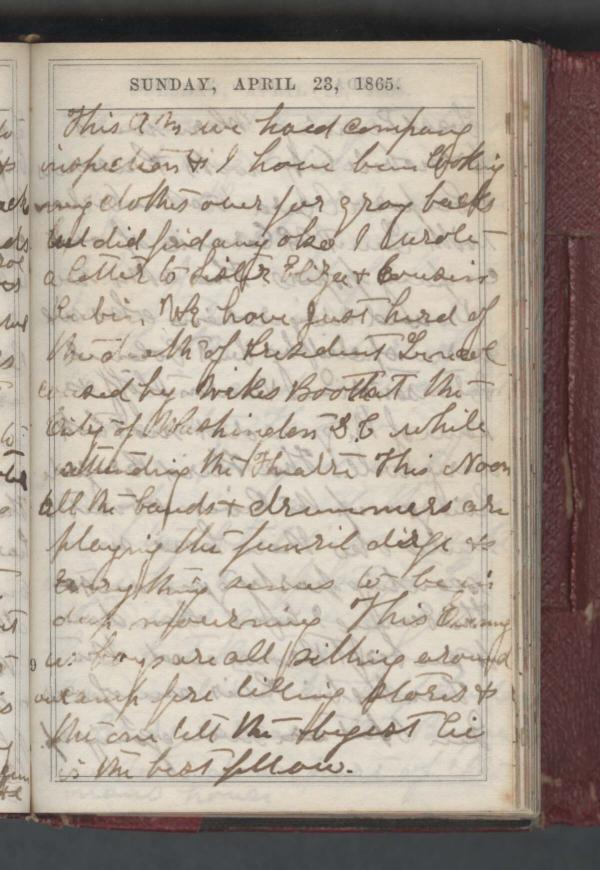 SUNDAY, APRIL 23, 1865.
This A M we haed company
inspection & I have been looking
my clothes over for gray backs
but did find any oko I wrote
a letter to Sister Eliza & Cousin
We have just hurd of
the death of President
caused by Wikes Booth at the
City of Washindon D.C while
attending the Theatre This Noon
all the bands & drummers are
playing the funril dirge &
everything semes to be in
deep mourning This Evning
us boys are all sitting around
our camp fire tilling storis &
the one tell the bigest lie
is the best fellow.